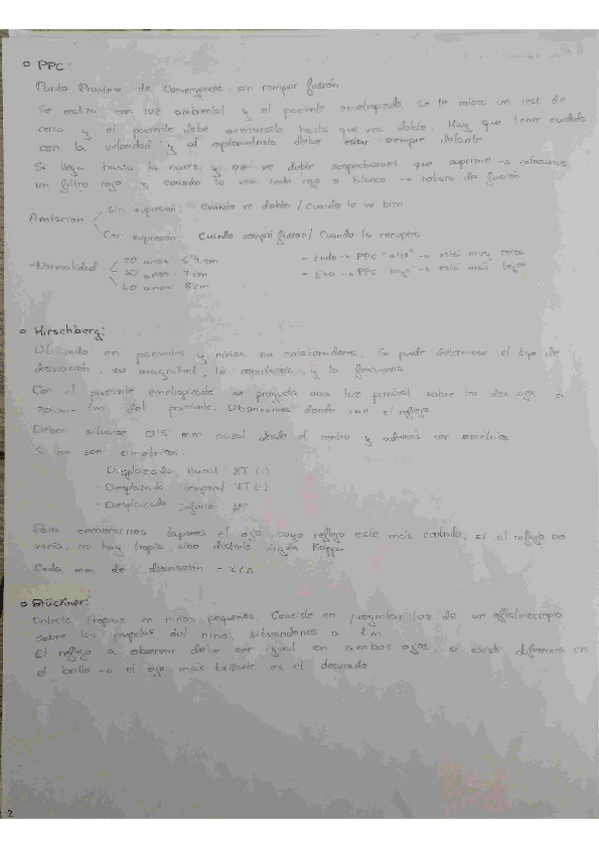 o PPC:
Punto Próximo de Convergencia, sin romper fusión
Se realiza con luz ambiental y el paciente emetropizado. Se le coloca un test de
cerca y el paciente debe acercarselo hasta que vea doble. Hay que tener cuidado
con la velocidad y el optometrista debe estar siempre delante
Si llega hasta la nariz y no ve doble sospechamos que suprime → colocamos
un filtro rojo y cuando lo vea todo rojo o blanco → rotura de fusión
Anotación
Sin supresión: Cuando ve doble / Cuando lo ve bien
Con supresión: Cuando rompió fusión / Cuando la recupera
- Normalidad
20 años 6'4 cm
30 años 7 cm
40 años 8 cm
- Endo → PPC "alto" → está muy cerca
- Exo → PPC "bajo" → está más lejos
o Hirschberg:
Utilizado en pacientes y niños no colaboradores. Se puede determinar el tipo de
desviación, su magnitud, la comitancia y la frecuencia
Con el paciente emetropizado se proyecta una luz puntual sobre los dos ojos a
del paciente. Observamos donde cae el reflejo
Deben situarse 0'5 mm nasal desde el centro y además ser simétricos
Si no son simétricos:
- Desplazado nasal XT (-)
- Desplazado temporal ET (-)
- Desplazado inferior
Para tapamos el ojo cuyo reflejo esté más centrado, si el reflejo no
varía, no hay tropia sino distinto ángulo Kappa
Cada mm de desviación -
o Brückner:
Detecta tropias en niños pequeños. Consiste en proyectar luz de un oftalmoscopio
sobre las pupilas del niño, situandonos a 1 m
El reflejo a observar debe ser igual en ambos ojos, si existe diferencia en
el brillo → el ojo más brillante es el desviado
2